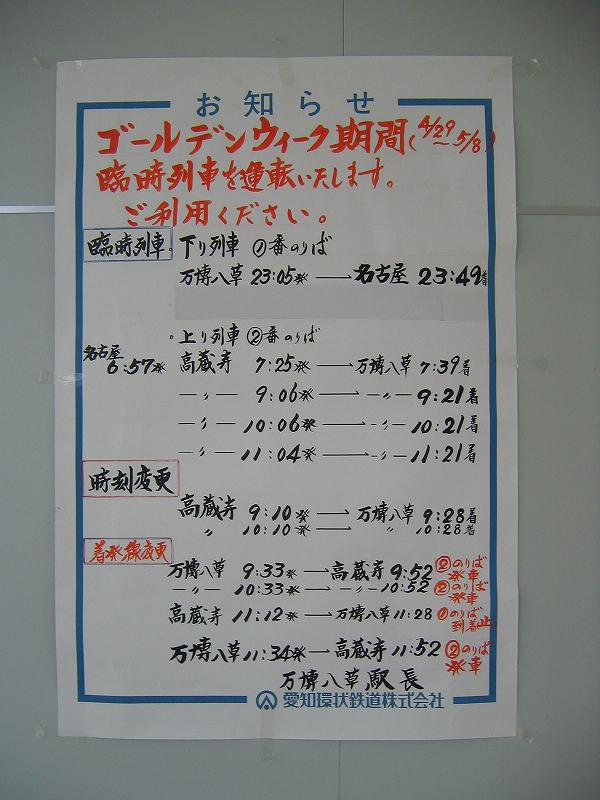 お知らせ
ゴールデンウィーク期間(4/29～5/8)
臨時列車を運転いたします。
ご利用ください。
臨時列車。下り列車 ①番のりば
万博八草 23:05発 → 名古屋 23:49着
。上り列車 ②番のりば
名古屋 6:57発 高蔵寺 7:25発 → 万博八草 7:39着
―〃― 9:06発 → ―〃― 9:21着
―〃― 10:06発 → ―〃― 10:21着
―〃― 11:04発 → ―〃― 11:21着
時刻変更
高蔵寺 9:10発 → 万博八草 9:28着
〃 10:10発 → 〃 10:28着
着発線変更
万博八草 9:33発 → 高蔵寺 9:52 ②のりば発車
―〃― 10:33発 → ―〃― 10:52 ②のりば発車
高蔵寺 11:12発 → 万博八草 11:28 ①のりば到着止
万博八草 11:34発 → 高蔵寺 11:52 ②のりば発車
万博八草駅長
愛知環状鉄道株式会社